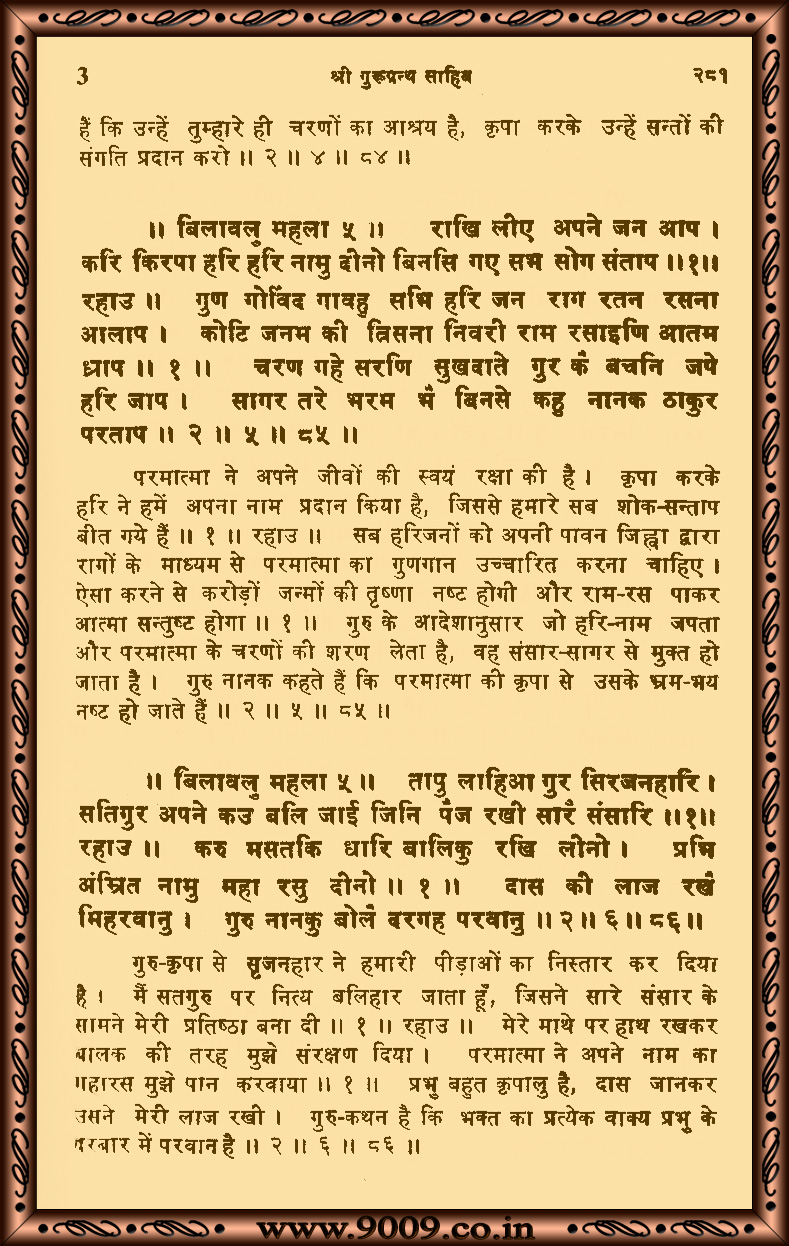 3 श्री गुरूग्रन्थ साहिब २८१
हैं कि उन्हें तुम्हारे ही चरणों का आश्रय है, कृपा करके उन्हें सन्तों की
संगति प्रदान करो ॥ २ ॥ ४ ॥ ८४ ॥
॥ बिलावलु महला ५ ॥ राखि लीए अपने जन आप ।
करि किरपा हरि हरि नामु दीनो बिनसि गए सभ सोग संताप ॥१॥
रहाउ ॥ गुण गोविंद गावहु सभि हरि जन राग रतन रसना
आलाप । कोटि जनम की त्रिसना निवरी राम रसाइणि आतम
ध्राप ॥ १ ॥ चरण गहे सरणि सुखदाते गुर कै बचनि जपे
हरि जाप । सागर तरे भरम भै बिनसे कहु नानक ठाकुर
परताप ॥ २ ॥ ५ ॥ ८५ ॥
परमात्मा ने अपने जीवों की स्वयं रक्षा की है । कृपा करके
हरि ने हमें अपना नाम प्रदान किया है, जिससे हमारे सब शोक-सन्ताप
बीत गये हैं ॥ १ ॥ रहाउ ॥ सब हरिजनों को अपनी पावन जिह्वा द्वारा
रागों के माध्यम से परमात्मा का गुणगान उच्चारित करना चाहिए ।
ऐसा करने से करोड़ों जन्मों की तृष्णा नष्ट होगी और राम-रस पाकर
आत्मा सन्तुष्ट होगा ॥ १ ॥ गुरु के आदेशानुसार जो हरि-नाम जपता
और परमात्मा के चरणों की शरण लेता है, वह संसार-सागर से मुक्त हो
जाता है । गुरु नानक कहते हैं कि परमात्मा की कृपा से उसके भ्रम-भय
नष्ट हो जाते हैं ॥ २ ॥ ५ ॥ ८५ ॥
॥ बिलावलु महला ५ ॥ तापु लाहिआ गुर सिरजनहारि ।
सतिगुर अपने कउ बलि जाई जिनि पैज रखी सारै संसारि ॥१॥
रहाउ ॥ करु मसतकि धारि बालिकु रखि लीनो । प्रभि
अंम्रित नामु महा रसु दीनो ॥ १ ॥ दास की लाज रखै
मिहरवानु । गुरु नानकु बोलै दरगह परवानु ॥ २ ॥ ६ ॥ ८६ ॥
गुरु-कृपा से सृजनहार ने हमारी पीड़ाओं का निस्तार कर दिया
है । मैं सतगुरु पर नित्य बलिहार जाता हूँ, जिसने सारे संसार के
सामने मेरी प्रतिष्ठा बना दी ॥ १ ॥ रहाउ ॥ मेरे माथे पर हाथ रखकर
बालक की तरह मुझे संरक्षण दिया । परमात्मा ने अपने नाम का
महारस मुझे पान करवाया ॥ १ ॥ प्रभु बहुत कृपालु है, दास जानकर
उसने मेरी लाज रखी । गुरु-कथन है कि भक्त का प्रत्येक वाक्य प्रभु के
दरबार में परवान है ॥ २ ॥ ६ ॥ ८६ ॥
www.9009.co.in